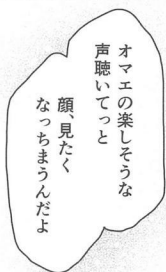 オマエの楽しそうな
声聴いてっと
顔、見たく
なっちまうんだよ